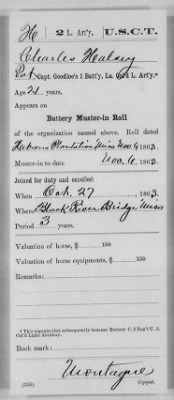 H 2 L. Art'y. U.S.C.T.
Charles Halsey
Pvt., Capt. Goodloe's 1 Batt'y, La. Col'd L. Art'y.*
Age 21 years.
Appears on
Battery Muster-in Roll
of the organization named above. Roll dated
Hebron Plantation Miss Nov 6, 1863.
Muster-in to date Nov. 6, 1863.
Joined for duty and enrolled:
When Oct. 27, 1863.
Where Black River Bridge Miss
Period 3 years.
Valuation of horse, $ 100
Valuation of horse equipments, $ 100
Remarks:
* This organization subsequently became Battery C, 2 Reg't U. S. Col'd Light Artillery.
Book mark:
Montague
(356) Copyist.